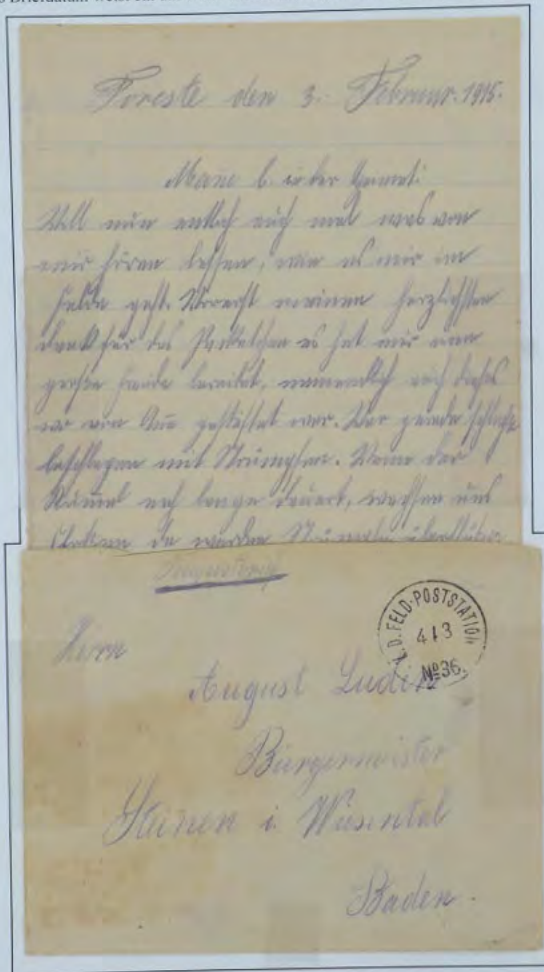 Foreste den 3. Februar. 1915.
Meine l. in der Heimat:
Will nun entlich auch mal was von
mir hören lassen, wie es mir im
Felde geht. Vorerst meinen herzlichsten
Dank für das Packetchen es hat mir eine
große Freude bereitet, namendlich auch dieses
wo von gestiftet war. War gerade schlecht
beschlagen mit Strümpfen. Wenn der
Rummel noch lange dauert, wachsen uns
da werden
K.D. FELD-POSTSTATION
4 1 3
Nº 36.
Herrn
August Ludin
Bürgermeister
Steinen i. Wiesental
Baden.